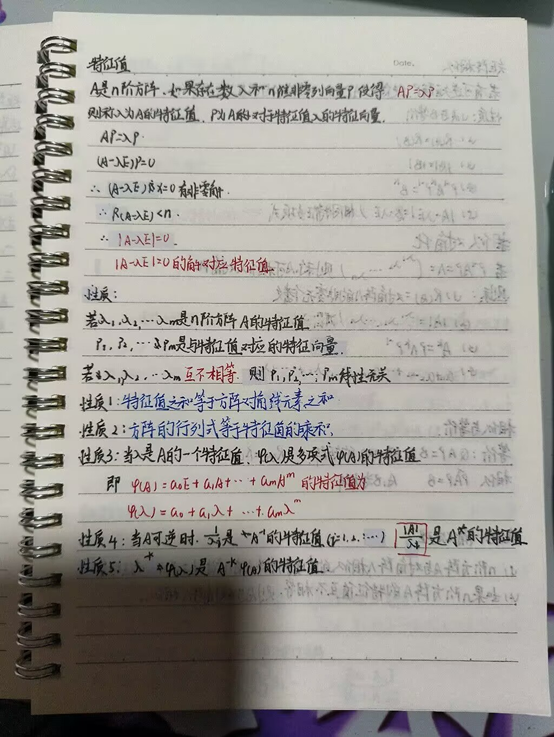 特征值 Date.
A是n阶方阵.如果存在数λ和n维非零列向量P,使得 AP=λP
则称λ为A的特征值,P为A的对于特征值λ的特征向量.
AP=λP.
(A-λE)P=0
∴ (A-λE)x=0 有非零解.
∴ R(A-λE)<n.
∴ |A-λE|=0.
|A-λE|=0的解对应特征值.
性质:
若λ1,λ2,…λm是n阶方阵A的特征值
P1,P2,…Pm是与特征值对应的特征向量.
若λ1,λ2,…λm互不相等 则P1,P2,…,Pm线性无关
性质1:特征值之和等于方阵对角线元素之和
性质2:方阵的行列式等于特征值的乘积.
性质3:当λ是A的一个特征值,φ(λ)是多项式φ(A)的特征值
即 φ(A)=a0E+a1A+…+amA^m 的特征值为
φ(λ)=a0+a1λ+…+amλ^m
性质4:当A可逆时,1/λi是A^-1的特征值(i=1,2,…) |A|/λi是A*的特征值
性质5:λ^k φ(λ)是A^k φ(A)的特征值